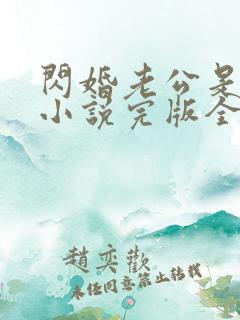 閃婚老公是
小說完版全
趙奕歡
未經同意禁止轉載